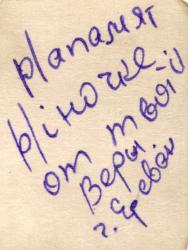 Напамят
Ніночке
от твоій
Веры.
г. Ереван